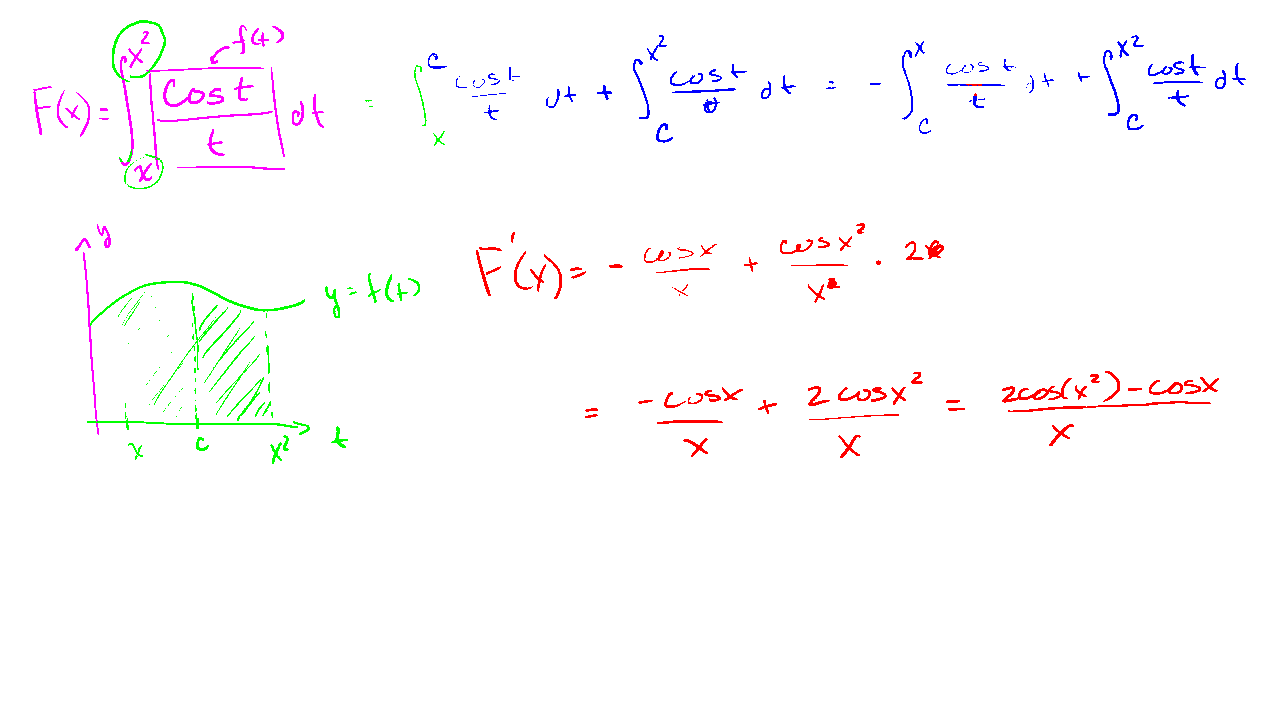 F(x) = ∫_x^{x²} cos t / t dt = ∫_x^c cos t / t dt + ∫_c^{x²} cos t / t dt = - ∫_c^x cos t / t dt + ∫_c^{x²} cos t / t dt
f(t)
y
y = f(t)
x c x² t
F'(x) = - cos x / x + cos x² / x · 2
= -cos x / x + 2 cos x² / x = 2cos(x²) - cos x / x